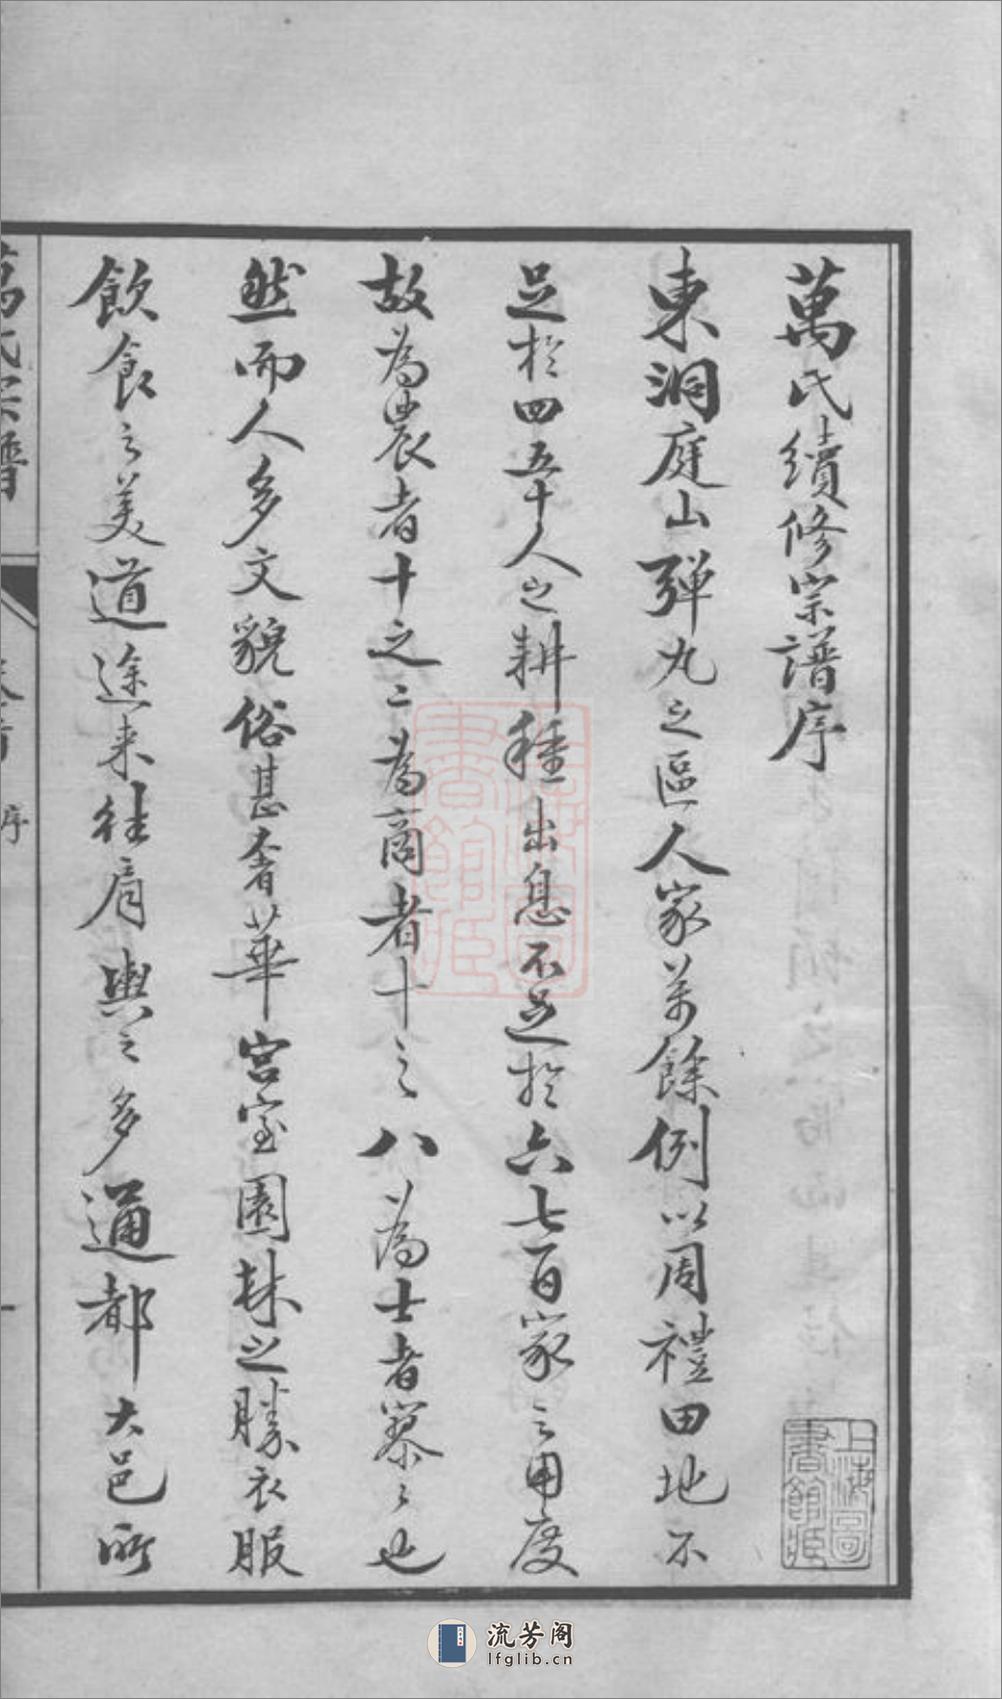 萬氏續修宗譜序
東洞庭山彈丸之區人家萬餘例以周禮田地不
足於四五十人之耕種出息不足於六七百家之用度
故為農者十之二為商者十之八為士者寥〻也
然而人多文貌俗甚奢華宫室園林之勝衣服
飲食之美道途来往肩輿之多通都大邑所
萬氏宗譜
序
一
上海圖書館藏
流芳阁
lfglib.cn